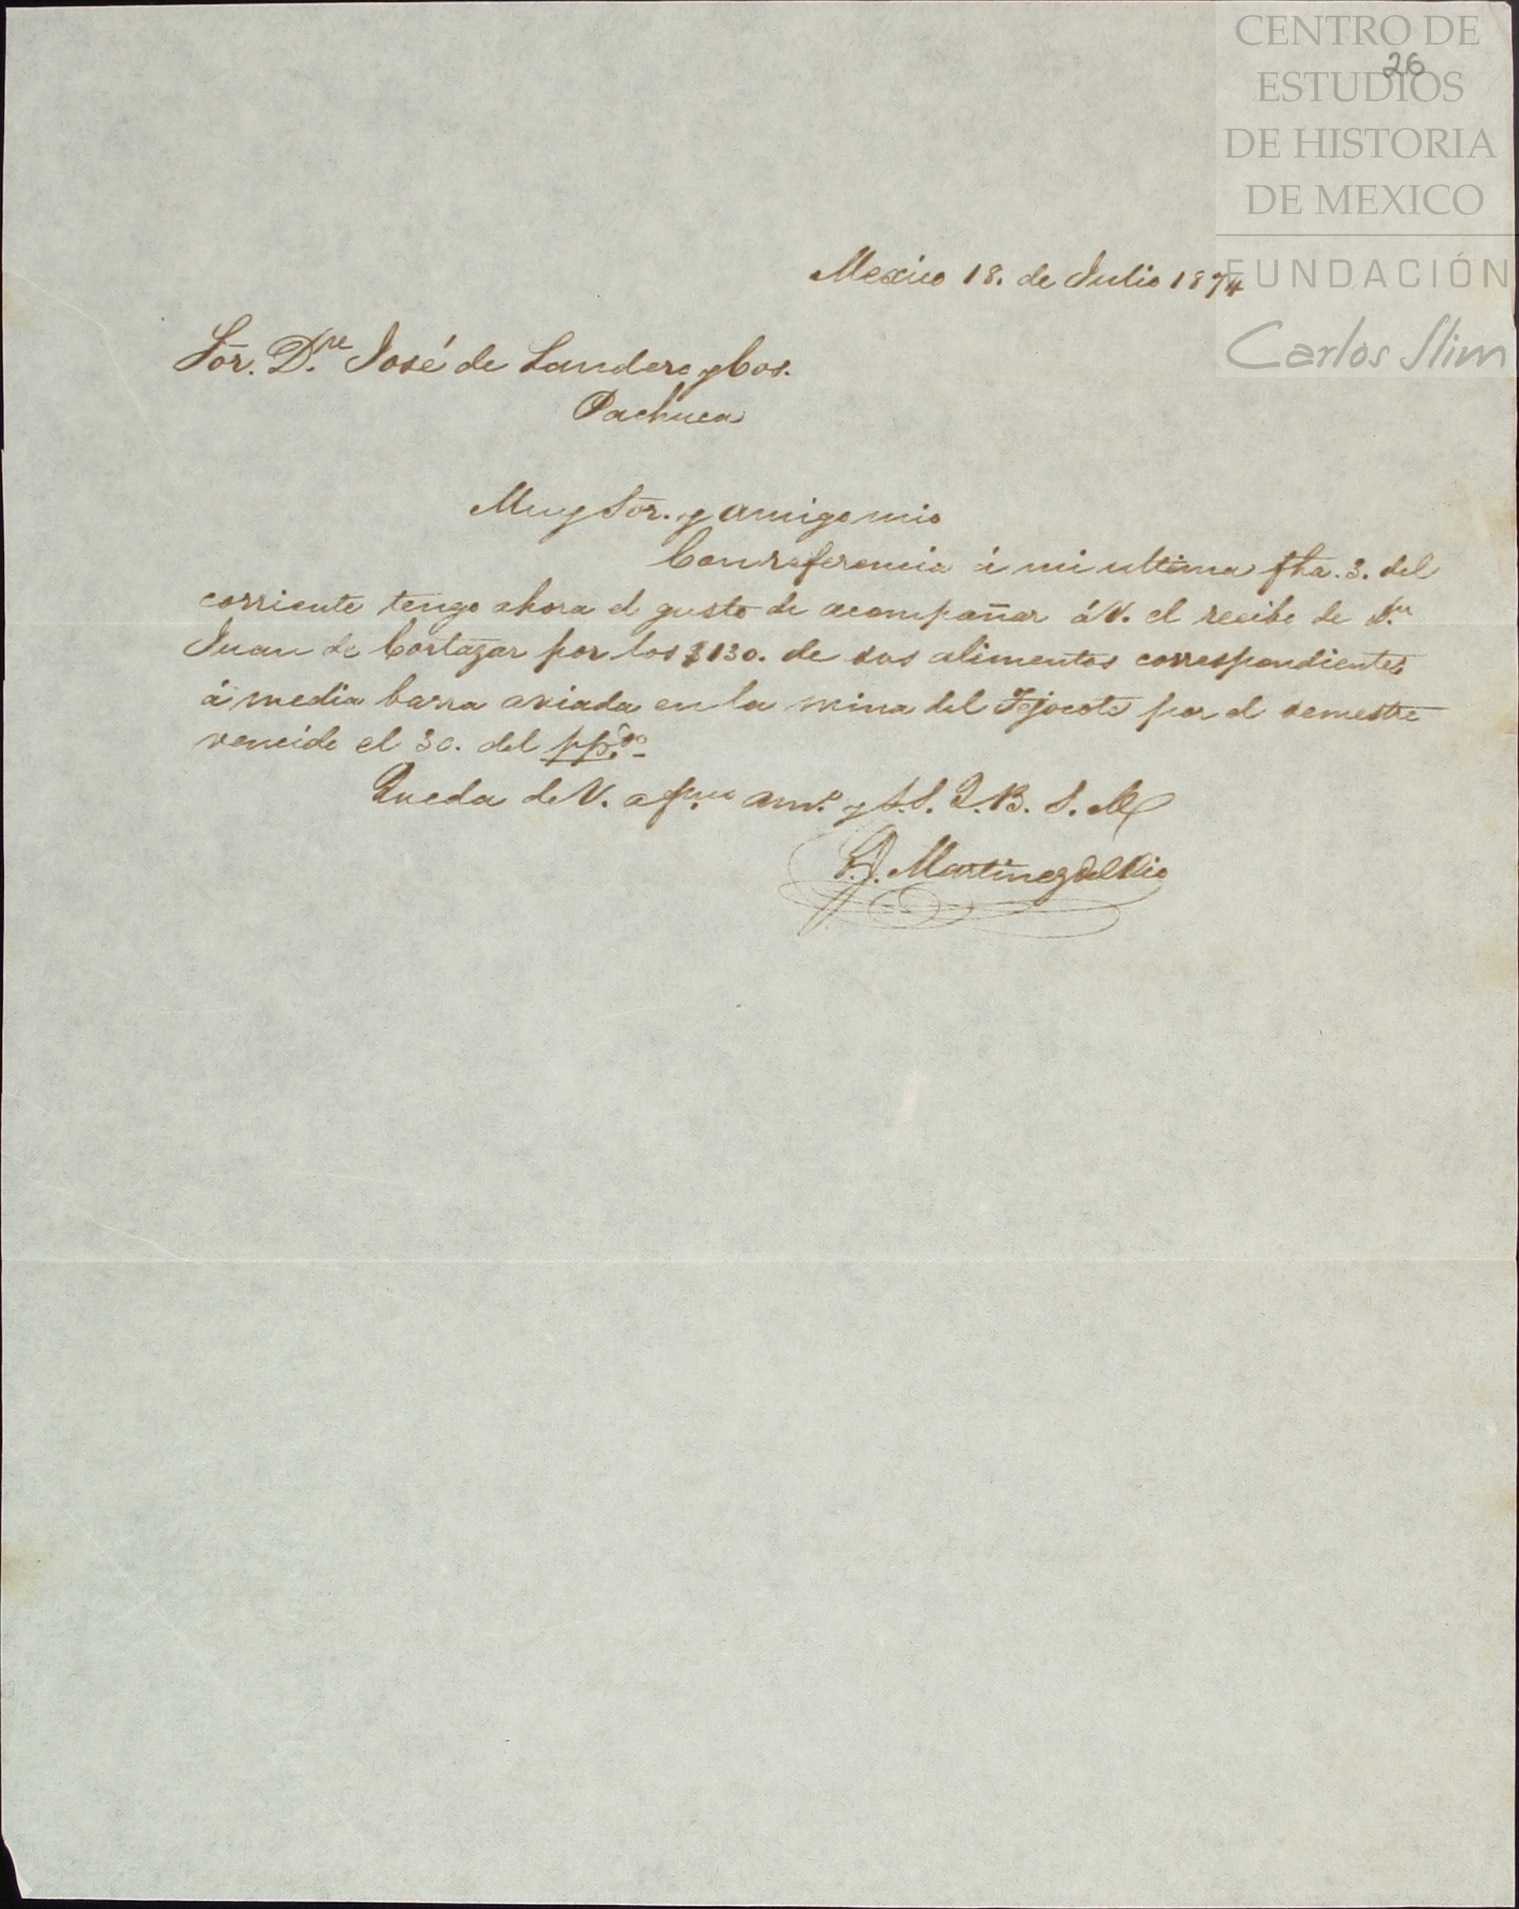 CENTRO DE
26
ESTUDIOS
DE HISTORIA
DE MEXICO
FUNDACIÓN
Carlos Slim
Mexico 18. de Julio 1874
Sor. D.n José de Landero y Cos.
Pachuca
Muy Sor. y amigo mio
Con referencia á mi ultima fha. 3. del
corriente tengo ahora el gusto de acompañar á V. el recibo de D.n
Juan de Cortazar por los $130. de sus alimentos correspondientes
á media barra aviada en la mina del Tejocote por el semestre
vencido el 30. del pp.do
Queda de V. afmo am.o y S.S. Q.B.S.M
P. Martinez del Rio